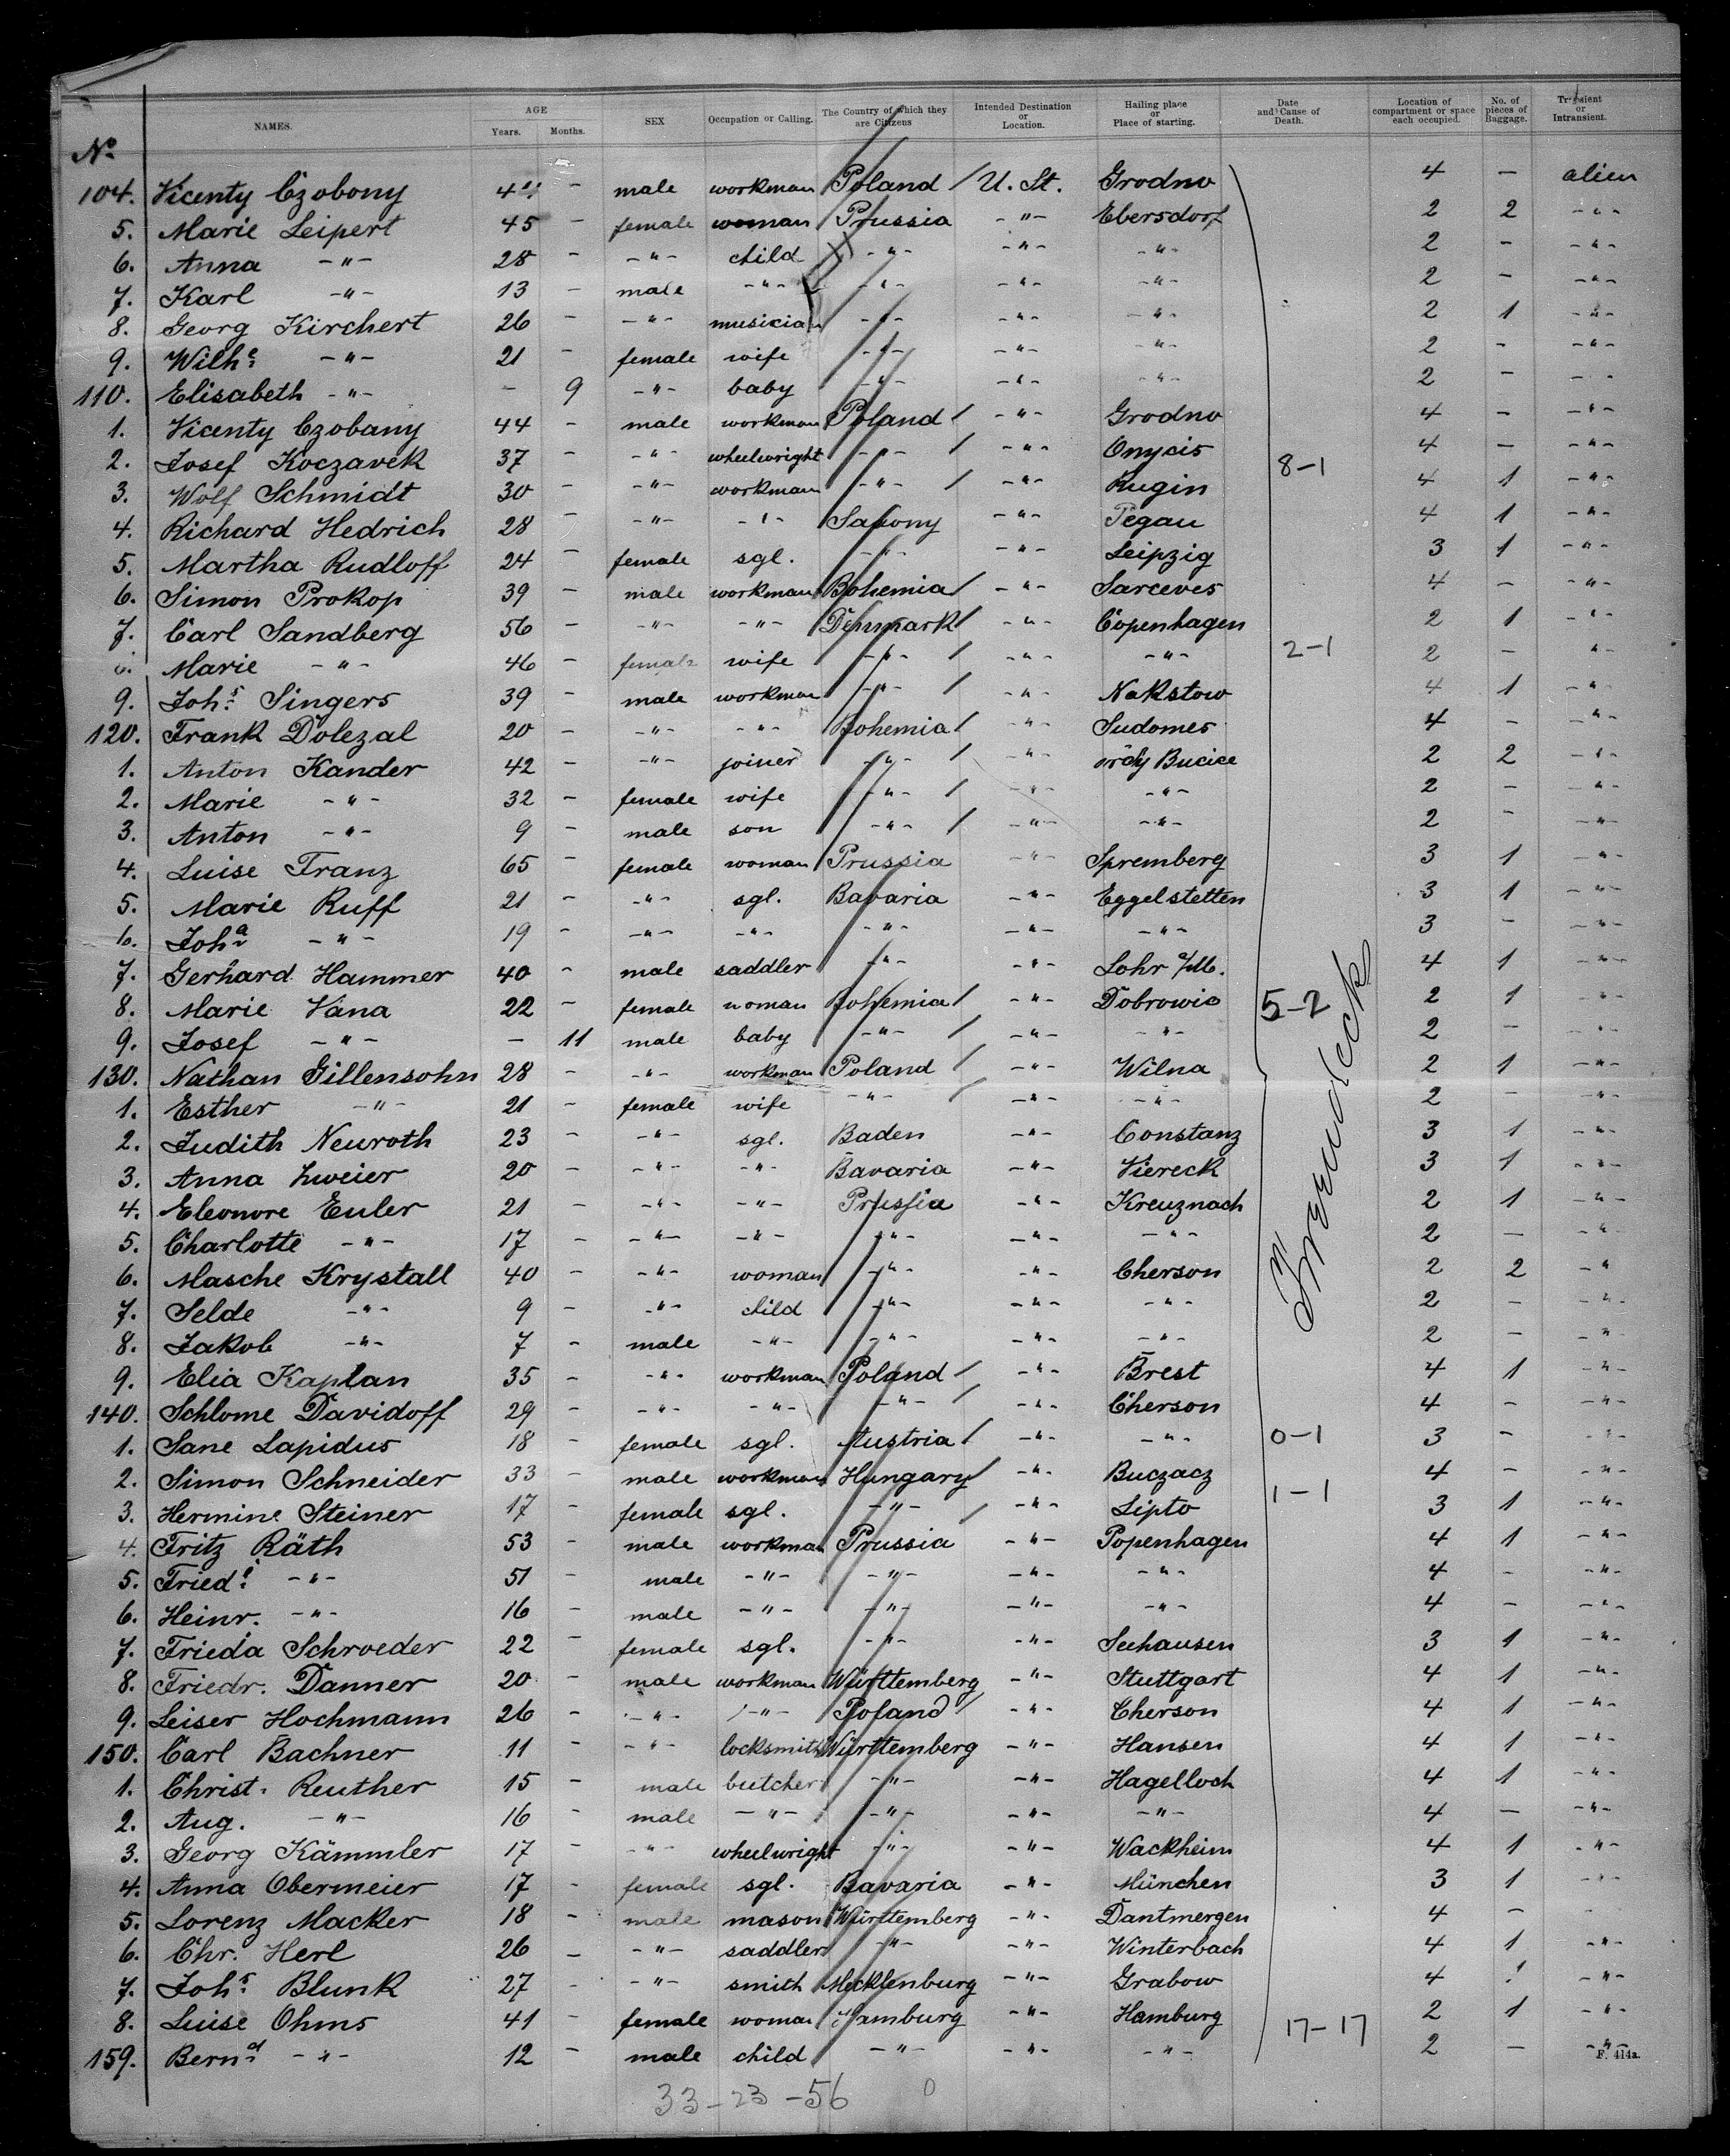 No. NAMES. AGE Years. Months. SEX Occupation or Calling. The Country of which they are Citizens Intended Destination or Location. Hailing place or Place of starting. Date and Cause of Death. Location of compartment or space each occupied. No. of pieces of Baggage. Transient or Intransient.
104. Vicenty Czobony 44 - male workman Poland / U. St. Grodno 4 - alien
5. Marie Leipert 45 - female woman Prussia -"- Ebersdorf 2 2 -"-
6. Anna -"- 28 - -"- child -"- -"- -"- 2 - -"-
7. Karl -"- 13 - male -"- -"- -"- -"- 2 - -"-
8. Georg Kirchert 26 - -"- musician -"- -"- -"- 2 1 -"-
9. Wilhe. -"- 21 - female wife -"- -"- -"- 2 - -"-
110. Elisabeth -"- - 9 -"- baby -"- -"- -"- 2 - -"-
1. Vicenty Czobany 44 - male workman Poland / -"- Grodno 4 - -"-
2. Josef Koczavek 37 - -"- wheelwright -"- / -"- Onycis 8-1 4 - -"-
3. Wolf Schmidt 30 - -"- workman -"- / -"- Rugin 4 1 -"-
4. Richard Hedrich 28 - -"- -"- Saxony -"- Pegau 4 1 -"-
5. Martha Rudloff 24 - female sgl. -"- -"- Leipzig 3 1 -"-
6. Simon Prokop 39 - male workman Bohemia / -"- Sarceves 4 - -"-
7. Carl Sandberg 56 - -"- -"- Denmark / -"- Copenhagen 2 1 -"-
8. Marie -"- 46 - female wife -"- / -"- -"- 2-1 2 - -"-
9. Johs. Singers 39 - male workman -"- / -"- Nakstow 4 1 -"-
120. Frank Dolezal 20 - -"- -"- Bohemia / -"- Sudomes 4 - -"-
1. Anton Kander 42 - -"- joiner -"- / -"- Bucice 2 2 -"-
2. Marie -"- 32 - female wife -"- / -"- -"- 2 - -"-
3. Anton -"- 9 - male son -"- / -"- -"- 2 - -"-
4. Luise Franz 65 - female woman Prussia -"- Spremberg 3 1 -"-
5. Marie Ruff 21 - -"- sgl. Bavaria -"- Eggelstetten 3 1 -"-
6. Joha. -"- 19 - -"- -"- -"- -"- -"- 3 - -"-
7. Gerhard Hammer 40 - male saddler -"- -"- Lohr a/M. 4 1 -"-
8. Marie Vana 22 - female woman Bohemia / -"- Dobrowic 5-2 2 1 -"-
9. Josef -"- - 11 male baby -"- / -"- -"- 2 - -"-
130. Nathan Gillensohn 28 - -"- workman Poland / -"- Wilna 2 1 -"-
1. Esther -"- 21 - female wife -"- / -"- -"- 2 - -"-
2. Judith Neuroth 23 - -"- sgl. Baden -"- Constanz 3 1 -"-
3. Anna Zweier 20 - -"- -"- Bavaria -"- Viereck 3 1 -"-
4. Eleonore Euler 21 - -"- -"- Prussia -"- Kreuznach 2 1 -"-
5. Charlotte -"- 17 - -"- -"- -"- -"- -"- 2 - -"-
6. Masche Krystall 40 - -"- woman -"- -"- Cherson 2 2 -"-
7. Selde -"- 9 - -"- child -"- -"- -"- 2 - -"-
8. Jakob -"- 7 - male -"- -"- -"- -"- 2 - -"-
9. Elia Kaplan 35 - -"- workman Poland / -"- Brest 4 1 -"-
140. Schlome Davidoff 29 - -"- -"- -"- / -"- Cherson 4 - -"-
1. Sane Lapidus 18 - female sgl. Austria / -"- -"- 0-1 3 - -"-
2. Simon Schneider 33 - male workman Hungary / -"- Buczacz 4 - -"-
3. Hermine Steiner 17 - female sgl. -"- / -"- Lipto 1-1 3 1 -"-
4. Fritz Räth 53 - male workman Prussia -"- Popenhagen 4 1 -"-
5. Friede. -"- 51 - male -"- -"- -"- -"- 4 - -"-
6. Heinr. -"- 16 - male -"- -"- -"- -"- 4 - -"-
7. Frieda Schroeder 22 - female sgl. -"- -"- Seehausen 3 1 -"-
8. Friedr. Danner 20 - male workman Württemberg -"- Stuttgart 4 1 -"-
9. Leiser Hochmann 26 - -"- -"- Poland / -"- Cherson 4 1 -"-
150. Carl Bachner 11 - -"- locksmith Württemberg -"- Hansen 4 1 -"-
1. Christ. Reuther 15 - male butcher -"- -"- Hagelloch 4 1 -"-
2. Aug. -"- 16 - male -"- -"- -"- -"- 4 - -"-
3. Georg Kämmler 17 - -"- wheelwright -"- -"- Wackheim 4 1 -"-
4. Anna Obermeier 17 - female sgl. Bavaria -"- München 3 1 -"-
5. Lorenz Macker 18 - male mason Württemberg -"- Dantmergen 4 - -"-
6. Chr. Herl 26 - -"- saddler -"- -"- Winterbach 4 1 -"-
7. Johs. Blunk 27 - -"- smith Mecklenburg -"- Grabow 4 1 -"-
8. Luise Ohms 41 - female woman Hamburg -"- Hamburg 17-17 2 1 -"-
159. Bernd. -"- 12 - male child -"- -"- -"- 2 - -"-
F. 414a.
33-23-56 0